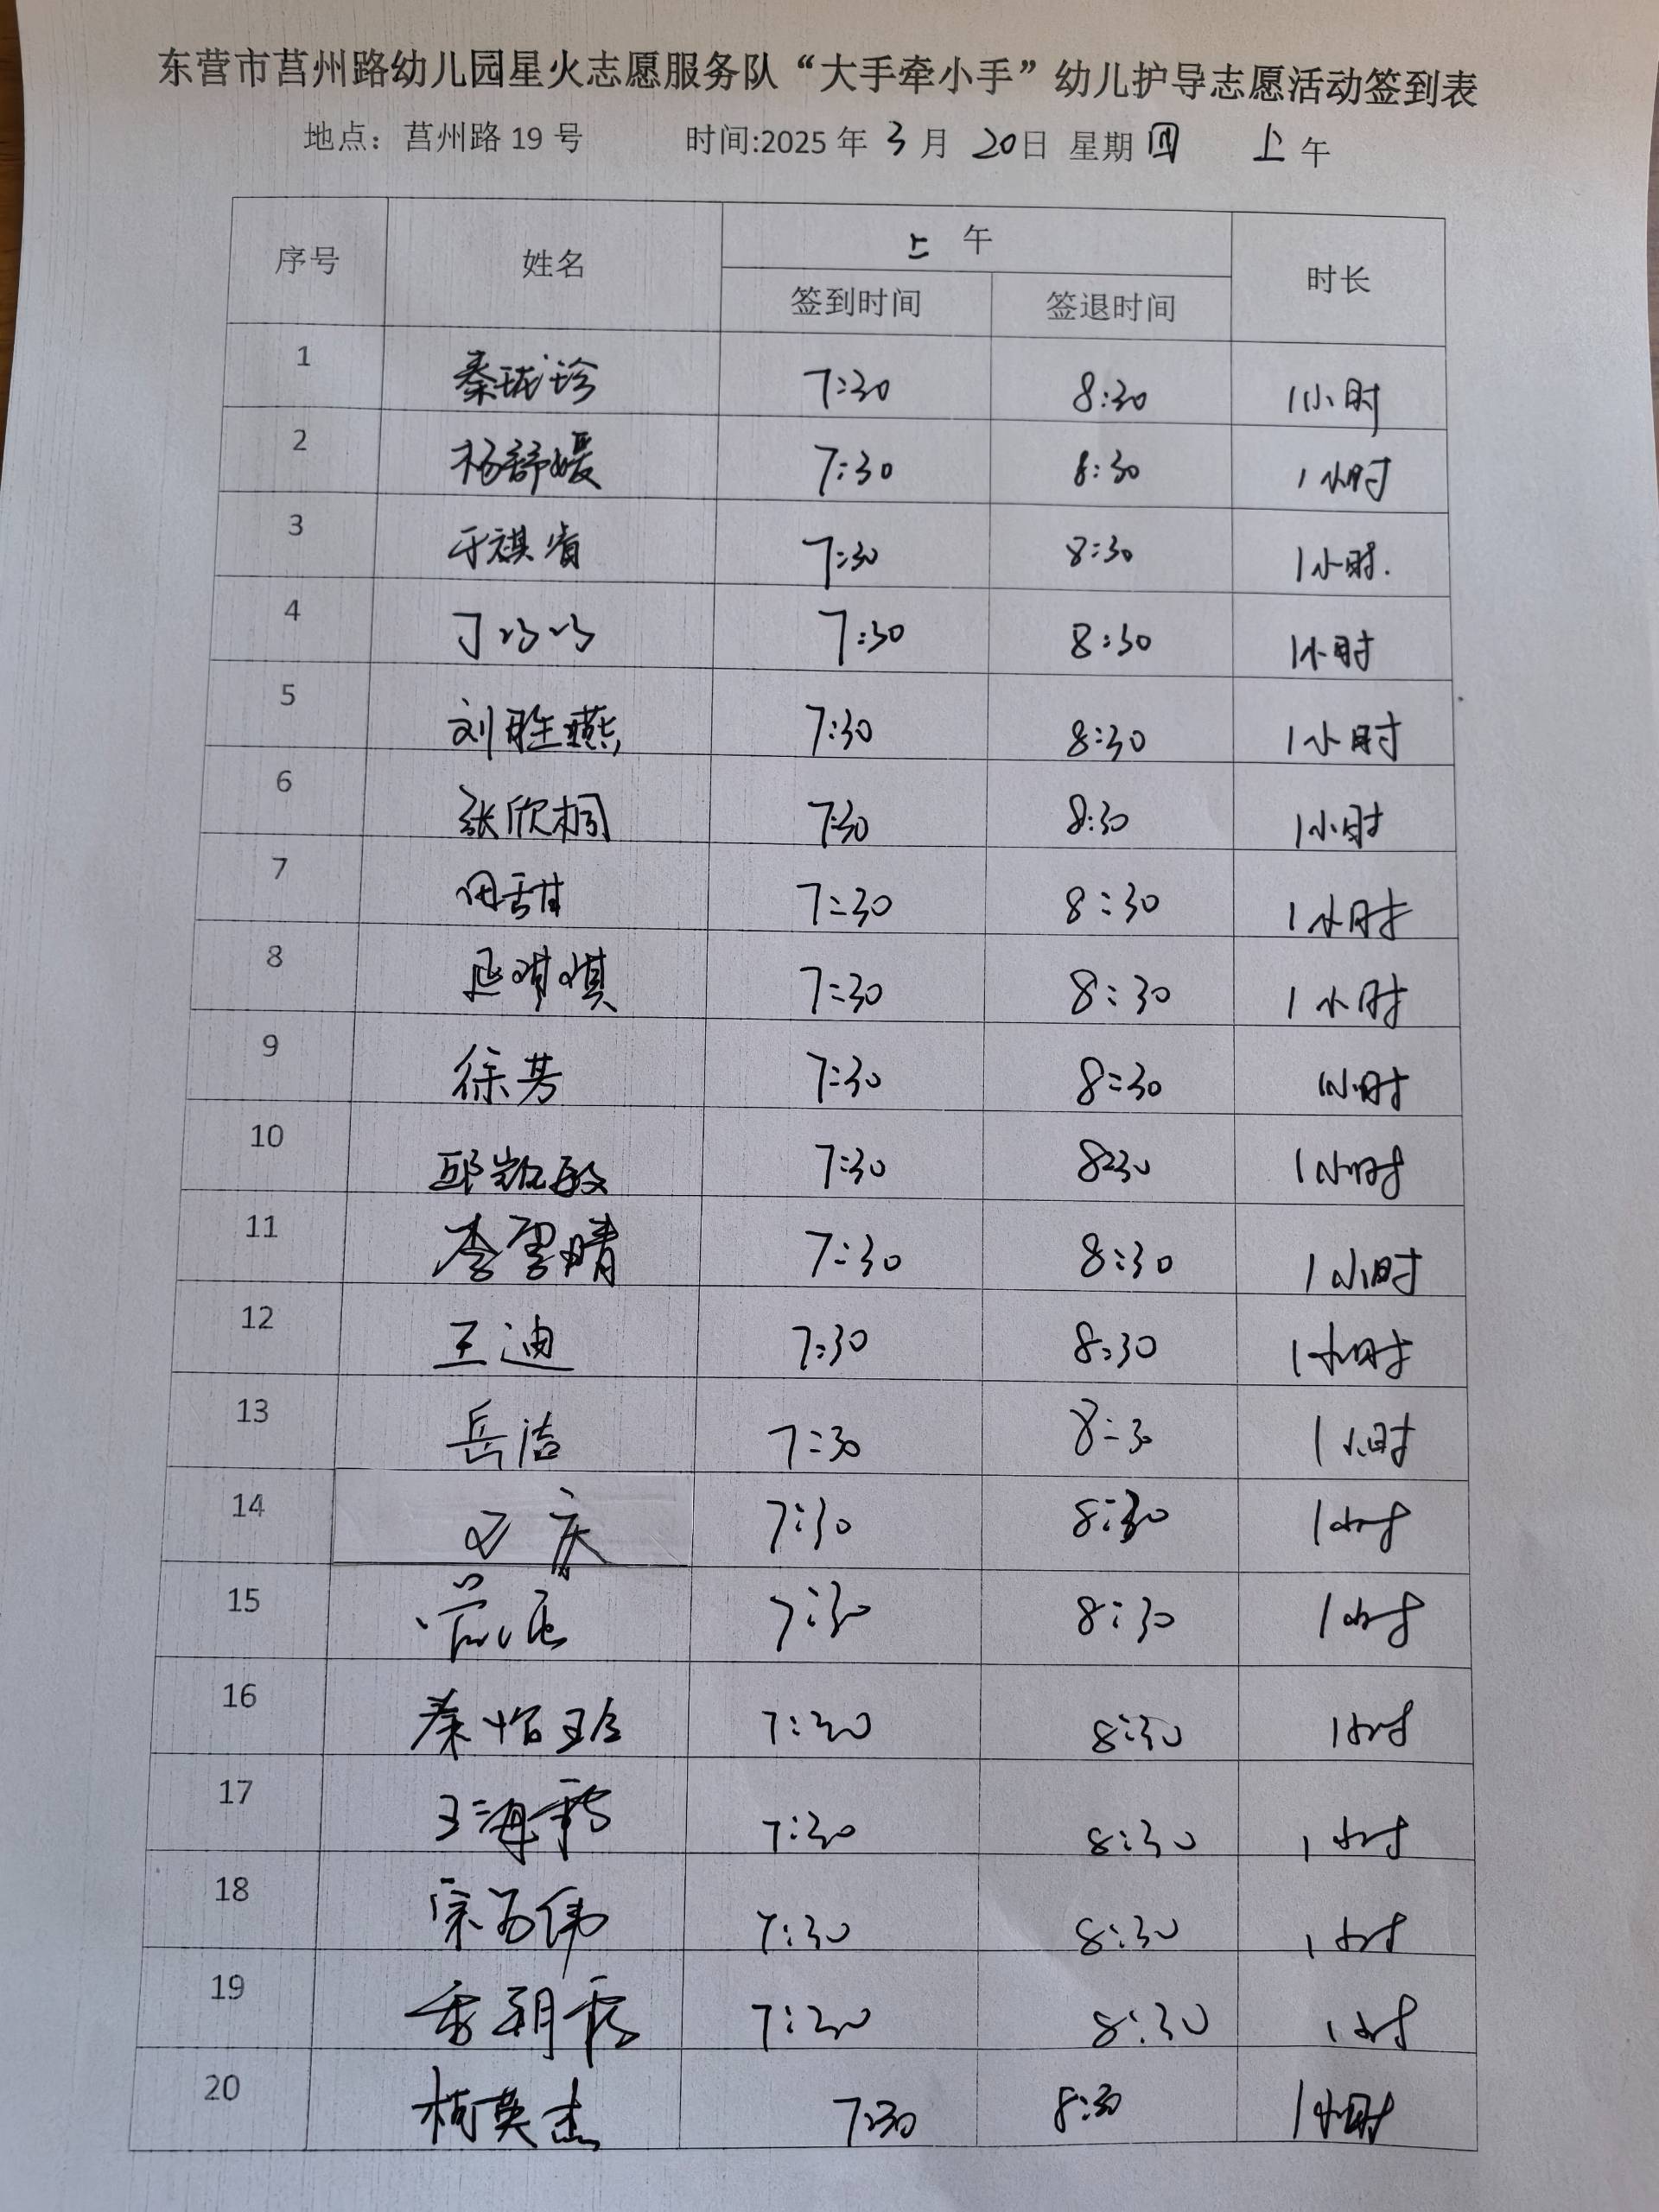 东营市莒州路幼儿园星火志愿服务队“大手牵小手”幼儿护导志愿活动签到表
地点：莒州路 19 号 时间:2025 年 3 月 20日 星期 四 上 午
序号 姓名 上 午 时长
签到时间 签退时间
1 秦珑珍 7:30 8:30 1小时
2 杨舒媛 7:30 8:30 1小时
3 于祺省 7:30 8:30 1小时.
4 丁 7:30 8:30 1小时
5 刘胜燕 7:30 8:30 1小时
6 张欣桐 7:30 8:30 1小时
7 田甜 7:30 8:30 1小时
8 7:30 8:30 1小时
9 徐芳 7:30 8:30 1小时
10 邱凯敏 7:30 8:30 1小时
11 李雪晴 7:30 8:30 1小时
12 王迪 7:30 8:30 1小时
13 岳洁 7:30 8:30 1小时
14 7:30 8:30 1小时
15 7:30 8:30 1小时
16 秦怡玲 7:30 8:30 1小时
17 王海霞 7:30 8:30 1小时
18 7:30 8:30 1小时
19 7:30 8:30 1小时
20 杨英杰 7:30 8:30 1小时